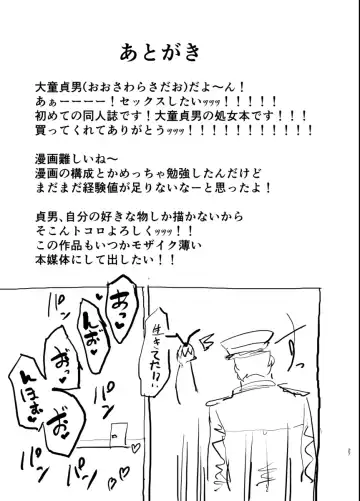 あとがき
大童貞男(おおさわらさだお)だよ～ん！
あぁーーーー！セックスしたいッッッ！！！！！
初めての同人誌です！大童貞男の処女本です！！！
買ってくれてありがとうッッッ！！！！！！！！！！！
漫画難しいね～
漫画の構成とかめっちゃ勉強したんだけど
まだまだ経験値が足りないなーと思ったよ！
貞男、自分の好きな物しか描かないから
そこんトコロよろしくッッッ！！
この作品もいつかモザイク薄い
本媒体にして出したい！！
生きてた!?
あっ♥
んお♥
おっ♥
んほぉ♥
お♥
パン
パン
パン
パン
パン